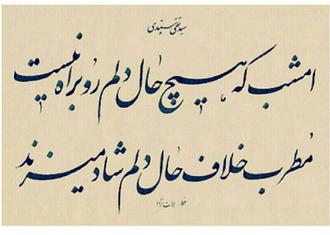 سید تقی سیدی
امشب که هیچ حال دلم رو براه نیست
مطرب خلاف حال دلم شاد میزند
خط: